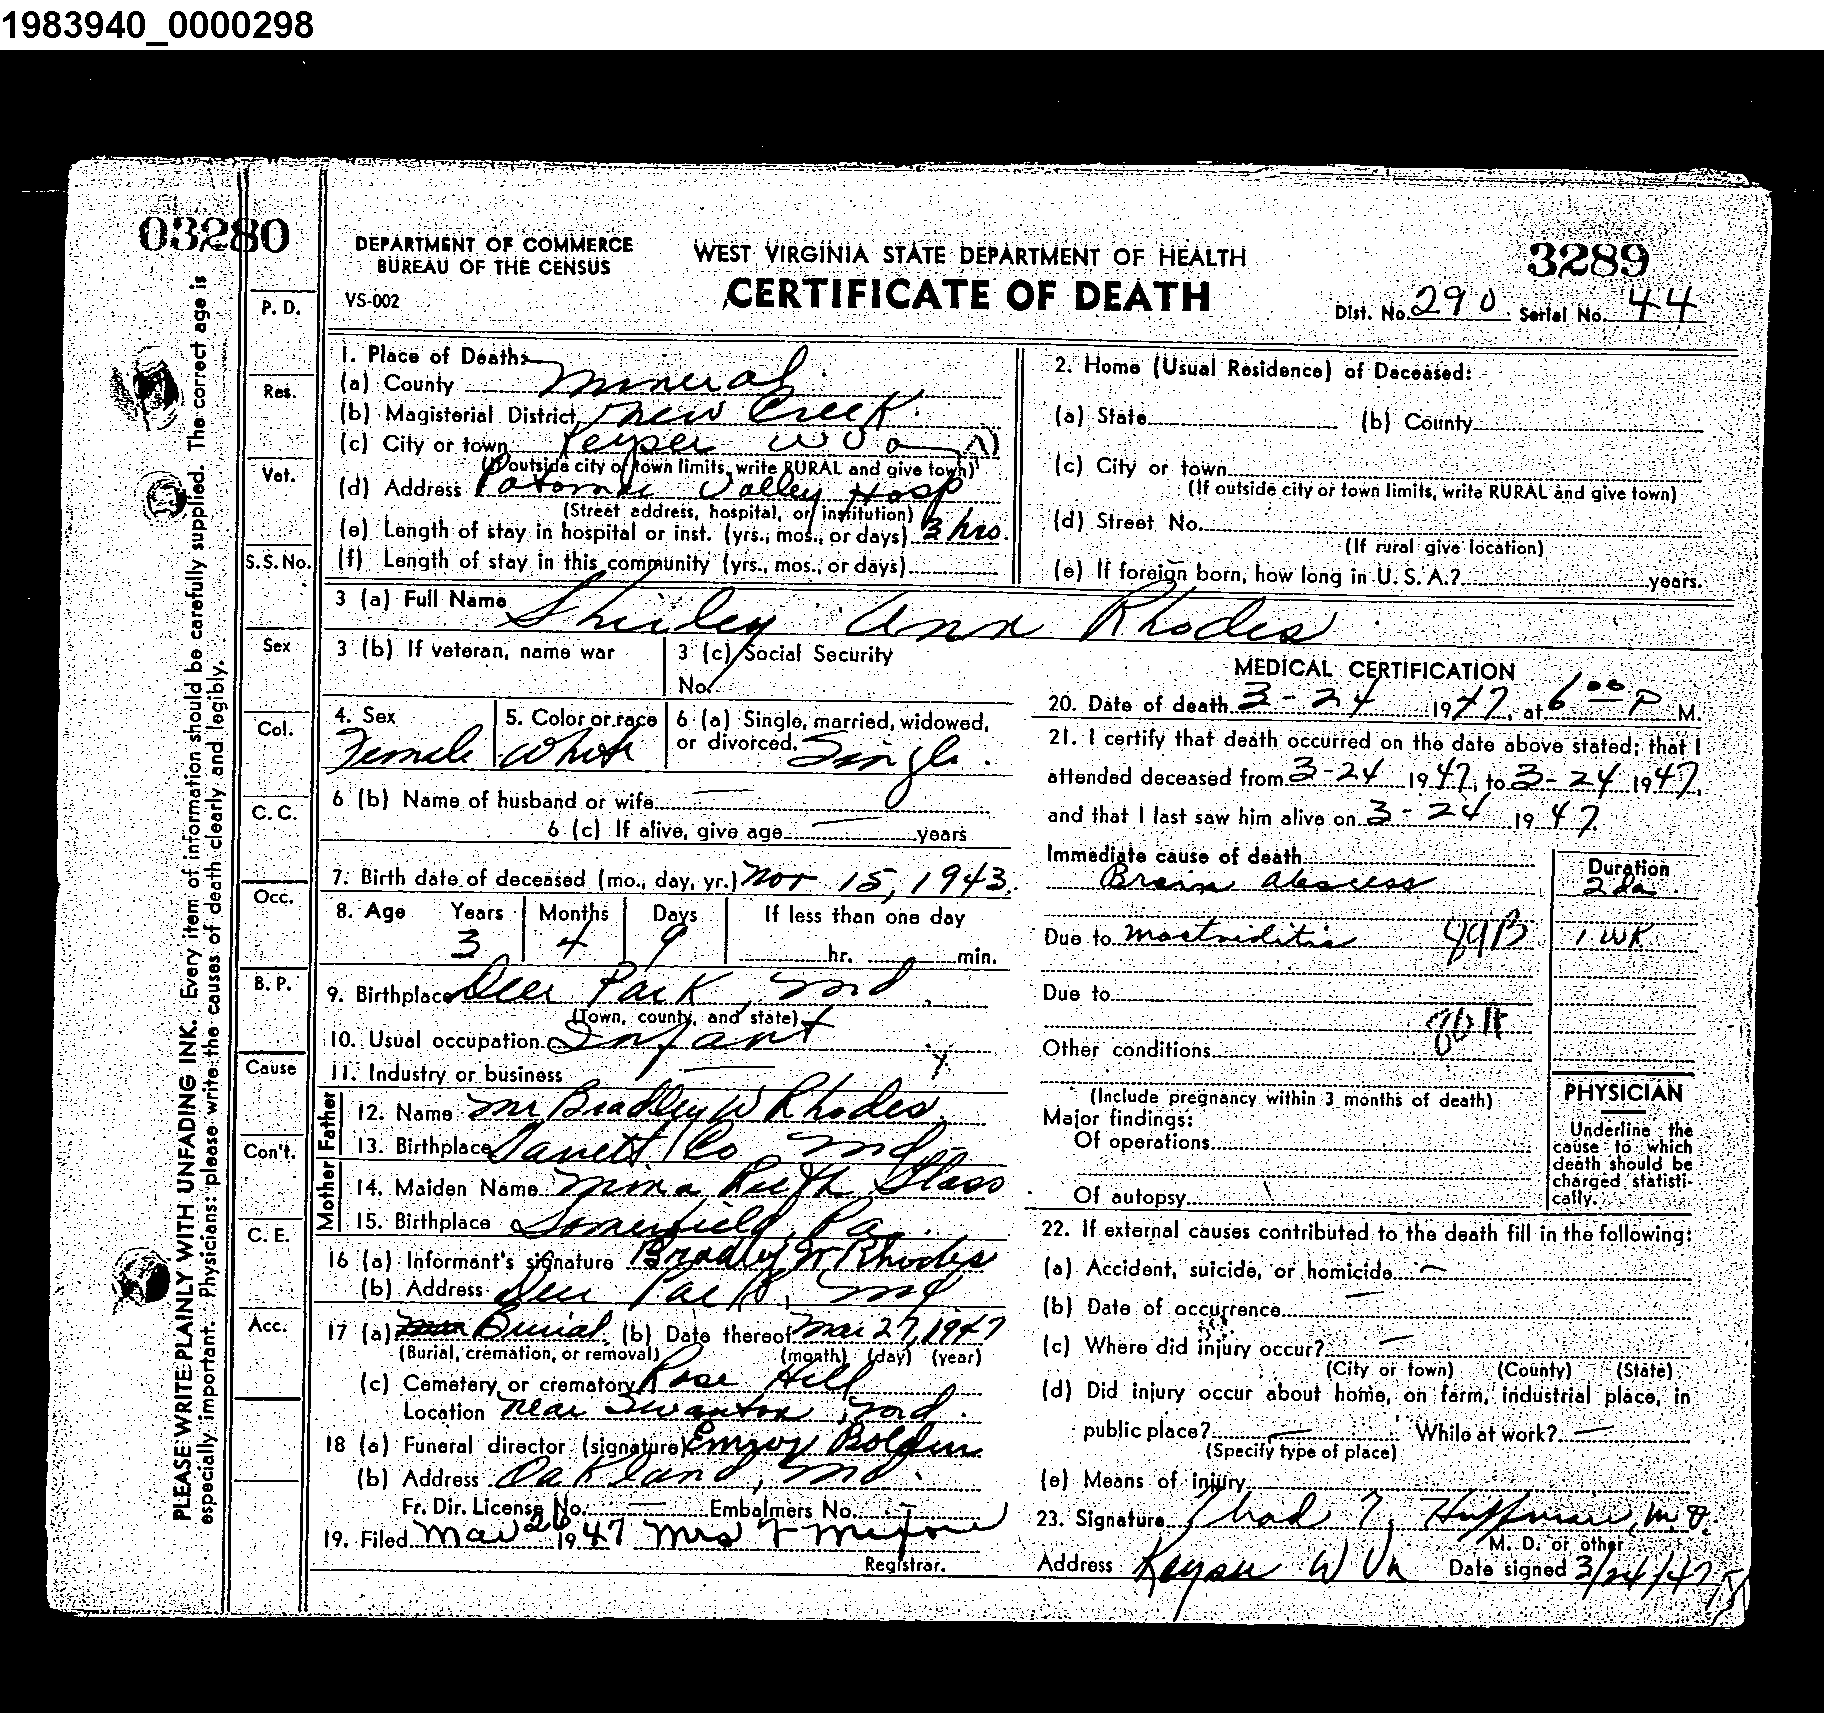 1983940_0000298
03280
DEPARTMENT OF COMMERCE
BUREAU OF THE CENSUS
VS-002
WEST VIRGINIA STATE DEPARTMENT OF HEALTH
CERTIFICATE OF DEATH
3289
Dist. No. 290 Serial No. 44
PLEASE WRITE PLAINLY WITH UNFADING INK. Every item of information should be carefully supplied. The correct age is
especially important. Physicians: please write the causes of death clearly and legibly.
P. D.
Res.
Vet.
S.S. No.
Sex
Col.
C. C.
Occ.
B. P.
Cause
Con't.
C. E.
Acc.
1. Place of Death:
(a) County Mineral
(b) Magisterial District New Creek
(c) City or town Keyser W Va
(If outside city or town limits, write RURAL and give town)
(d) Address Potomac Valley Hosp
(Street address, hospital, or institution)
(e) Length of stay in hospital or inst. (yrs., mos., or days) 3 hrs.
(f) Length of stay in this community (yrs., mos., or days)
2. Home (Usual Residence) of Deceased:
(a) State (b) County
(c) City or town
(If outside city or town limits, write RURAL and give town)
(d) Street No.
(If rural give location)
(e) If foreign born, how long in U. S. A.? years.
3 (a) Full Name Shirley Ann Rhodes
3 (b) If veteran, name war
3 (c) Social Security
No.
4. Sex
Female
5. Color or race
White
6 (a) Single, married, widowed,
or divorced. Single.
6 (b) Name of husband or wife —
6 (c) If alive, give age — years
7. Birth date of deceased (mo., day, yr.) Nov 15, 1943.
8. Age Years Months Days If less than one day
3 4 9 hr. min.
9. Birthplace Deer Park, Md.
(Town, county, and state)
10. Usual occupation Infant
11. Industry or business —
Father
12. Name Mr Bradley W Rhodes.
13. Birthplace Garrett Co Md
Mother
14. Maiden Name Ruth Glass
15. Birthplace Somerfield, Pa.
16 (a) Informant's signature Bradley W Rhodes
(b) Address Deer Park, Md
17 (a) Burial (b) Date thereof Mar 27, 1947
(Burial, cremation, or removal) (month) (day) (year)
(c) Cemetery or crematory Rose Hill
Location near Swanton, Md.
18 (a) Funeral director (signature) Emroy Bolden
(b) Address Oakland, Md.
Fr. Dir. License No. — Embalmers No. —
19. Filed Mar 26 1947 Mrs F
Registrar.
MEDICAL CERTIFICATION
20. Date of death 3-24 1947, at 6 00 P M.
21. I certify that death occurred on the date above stated; that I
attended deceased from 3-24 1947, to 3-24 1947,
and that I last saw him alive on 3-24 1947.
Immediate cause of death
Brain abscess
Duration
2 da.
Due to mastoiditis 89B
1 WK
Due to
Other conditions
(Include pregnancy within 3 months of death)
Major findings:
Of operations
Of autopsy
PHYSICIAN
Underline the
cause to which
death should be
charged statisti-
cally.
22. If external causes contributed to the death fill in the following:
(a) Accident, suicide, or homicide —
(b) Date of occurrence —
(c) Where did injury occur? —
(City or town) (County) (State)
(d) Did injury occur about home, on farm, industrial place, in
public place? — While at work? —
(Specify type of place)
(e) Means of injury
23. Signature Thad T. Huffman, M.D.
M. D. or other
Address Keyser W Va Date signed 3/24/47